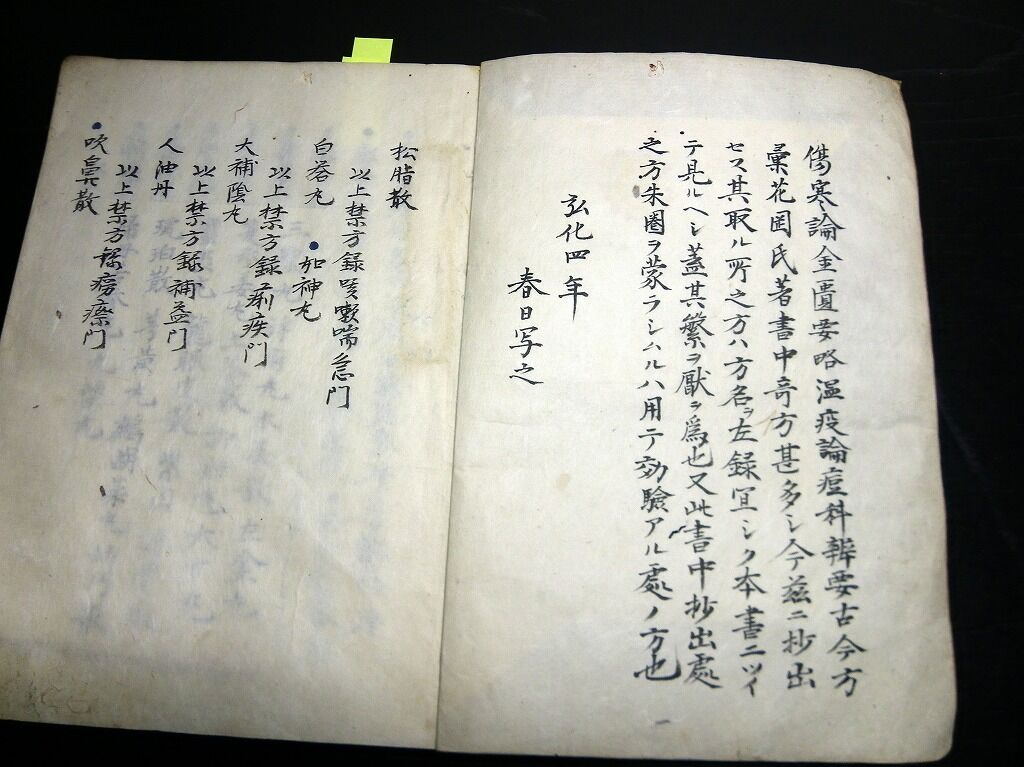 傷寒論金匱要略温疫論痘科辨要古今方
彙花岡氏著書中奇方甚多シ今茲ニ抄出
セス其取ル所之方ハ方名ヲ左録宜シク本書ニツイ
テ見ルヘシ蓋其繁ヲ厭ヲ為也又此書中抄出處
之方朱圏ヲ蒙ラシムルハ用テ効驗アル處ノ方也
弘化四年
春日写之
松脂散
以上禁方録咳嗽喘急門
白荅丸
如神丸
以上禁方録痢疾門
大補陰丸
以上禁方録補益門
人油丹
以上禁方録癆瘵門
吹鼻散